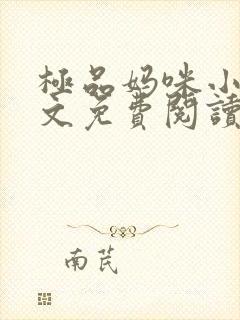 極品妈咪小
文免費閱讀
南芪